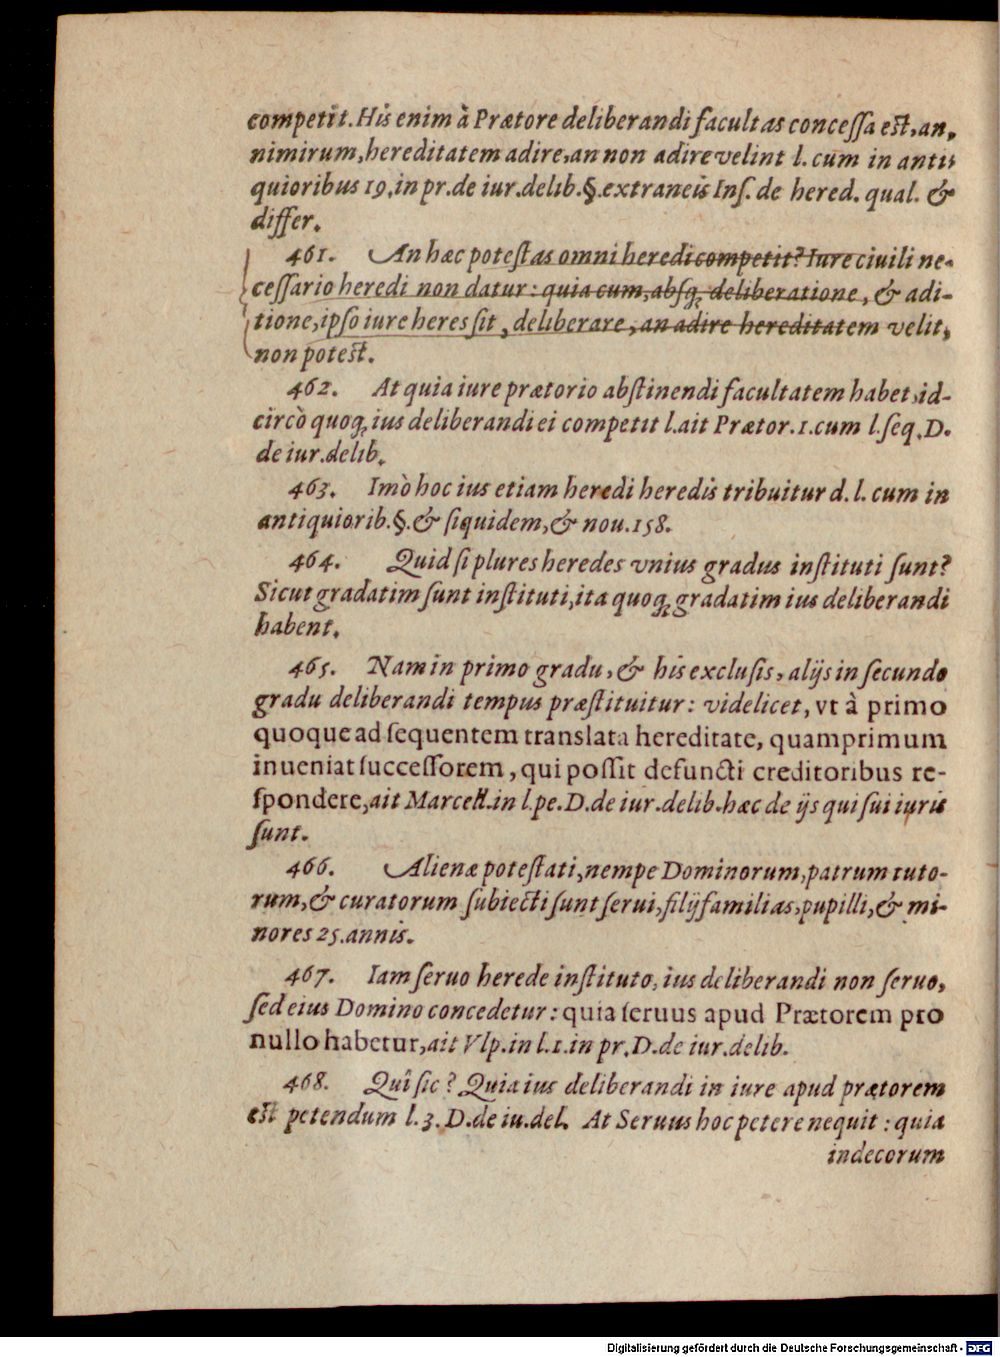 competit. His enim à Prætore deliberandi facultas concessa est, an,
nimirum, hereditatem adire, an non adire velint l. cum in anti-
quioribus 19. in pr. de iur. delib. §. extraneis Ins. de hered. qual. &
differ.
461. An hæc potestas omni heredi competit? Iure ciuili ne-
cessario heredi non datur: quia cum, absq; deliberatione, & adi-
tione, ipso iure heres sit, deliberare, an adire hereditatem velit,
non potest.
462. At quia iure prætorio abstinendi facultatem habet, id-
circò quoq; ius deliberandi ei competit l. ait Prætor. 1. cum l. seq. D.
de iur. delib.
463. Imò hoc ius etiam heredi heredis tribuitur d. l. cum in
antiquiorib. §. & siquidem, & nou. 158.
464. Quid si plures heredes vnius gradus instituti sunt?
Sicut gradatim sunt instituti, ita quoq; gradatim ius deliberandi
habent.
465. Nam in primo gradu, & his exclusis, alijs in secundo
gradu deliberandi tempus præstituitur: videlicet, vt à primo
quoque ad sequentem translata hereditate, quamprimum
inueniat successorem, qui possit defuncti creditoribus re-
spondere, ait Marcell. in l. pe. D. de iur. delib. hæc de ijs qui sui iuris
sunt.
466. Alienæ potestati, nempe Dominorum, patrum tuto-
rum, & curatorum subiecti sunt serui, filijfamilias, pupilli, & mi-
nores 25. annis.
467. Iam seruo herede instituto, ius deliberandi non seruo,
sed eius Domino concedetur: quia seruus apud Prætorem pro
nullo habetur, ait Vlp. in l. 1. in pr. D. de iur. delib.
468. Quî sic? Quia ius deliberandi in iure apud prætorem
est petendum l. 3. D. de iu. del. At Seruus hoc petere nequit: quia
indecorum
Digitalisierung gefördert durch die Deutsche Forschungsgemeinschaft - DFG